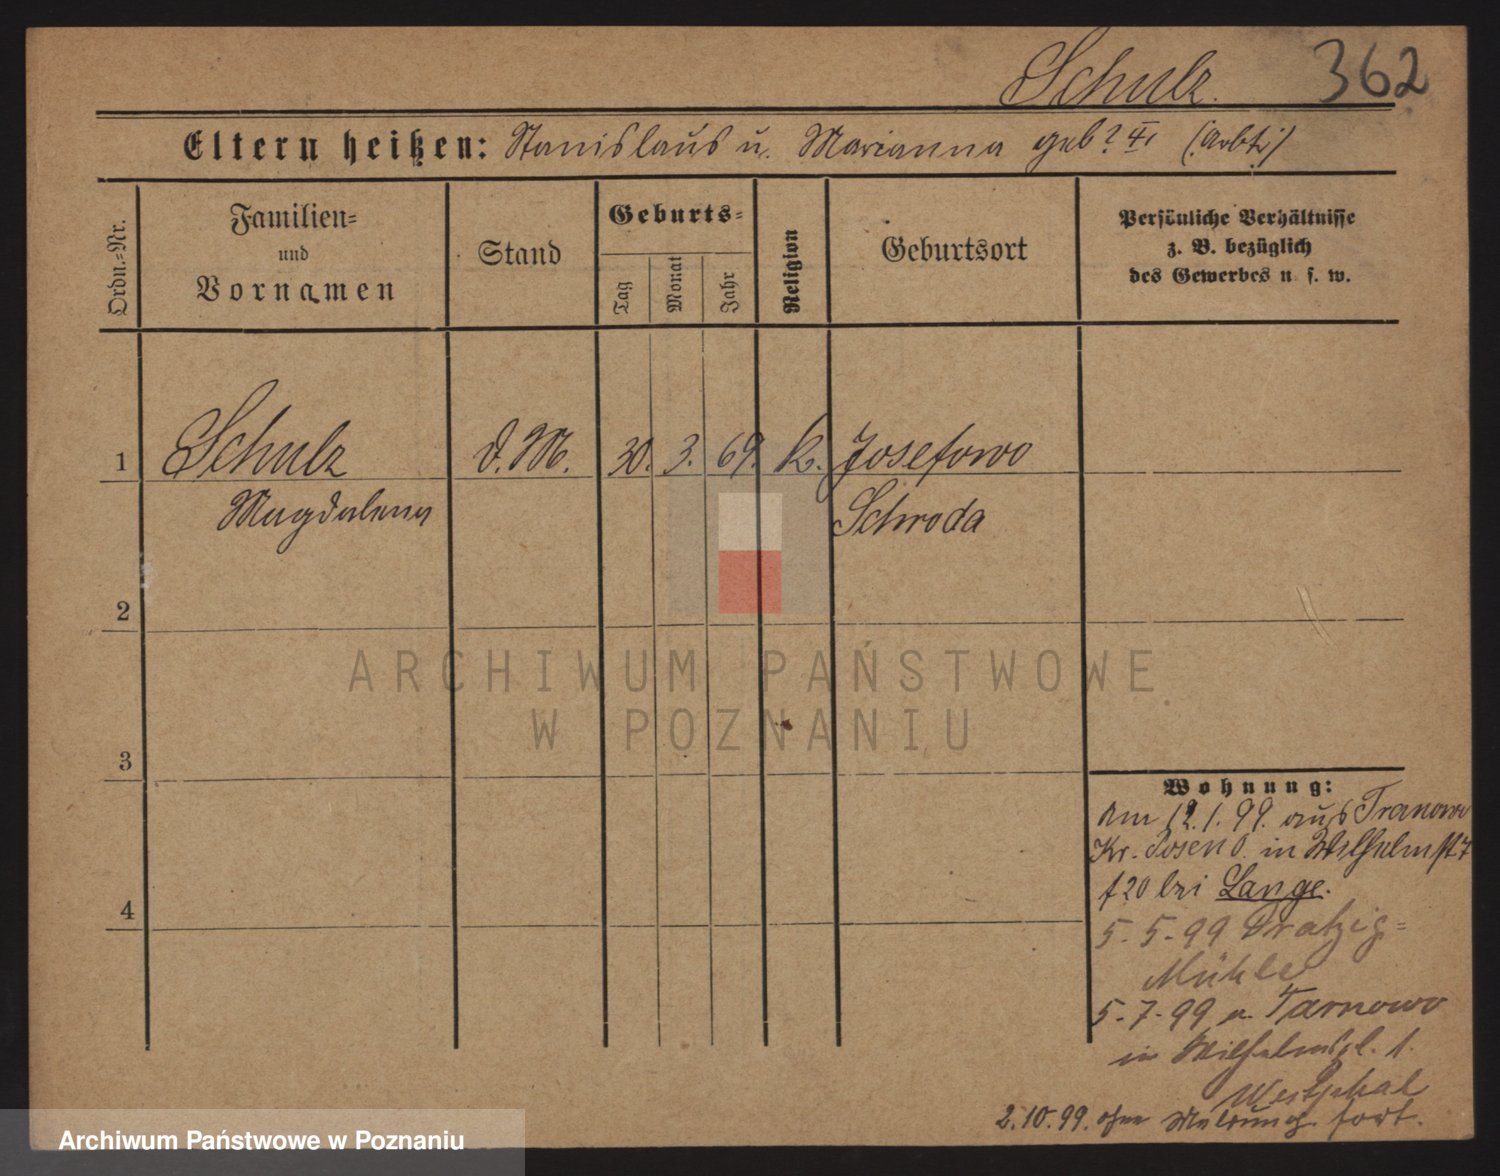 Schulz. 362
Eltern heißen: Stanislaus u. Marianna geb? (Arbtr)
Ordn.-Nr.
Familien-
und
Vornamen
Stand
Geburts-
Tag
Monat
Jahr
Religion
Geburtsort
Persönliche Verhältnisse
z. B. bezüglich
des Gewerbes u. s. w.
1 Schulz d. M. 30. 3. 69. k. Josefowo
Magdalena Schroda
2
ARCHIWUM PAŃSTWOWE
W POZNANIU
3
Wohnung:
Am 12.1.99. aus Tranowo
Kr. Posen O. in Wilhelmstr
20 bei Lange.
4
5.5.99 Dratzig-
Mühle
5.7.99 a. Tarnowo
in Wilhelmspl. 1.
Westphal
2.10.99. ohne Meldung fort.
Archiwum Państwowe w Poznaniu